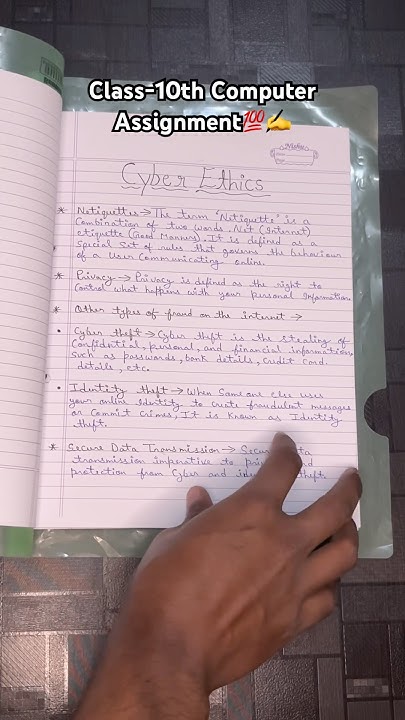 Class-10th Computer
Assignment💯✍️
Cyber Ethics
* Netiquettes → The term "Netiquette" is a
Combination of two words, Net (Internet)
etiquette (Good Manners), It is defined as a
Special Set of rules that governs the behaviour
of a User Communicating online.
* Privacy → Privacy is defined as the right to
Control what happens with your personal Information.
* Other types of fraud on the internet →
• Cyber theft → Cyber theft is the stealing of
Confidential, personal, and financial information,
Such as passwords, bank details, credit card
details, etc.
• Identity theft → When Someone else uses
your online Identity to create fraudulent messages
or Commit Crimes, It is Known as Identity
theft.
* Secure Data Transmission → Secure Data
transmission imperative to
protection from Cyber and theft.